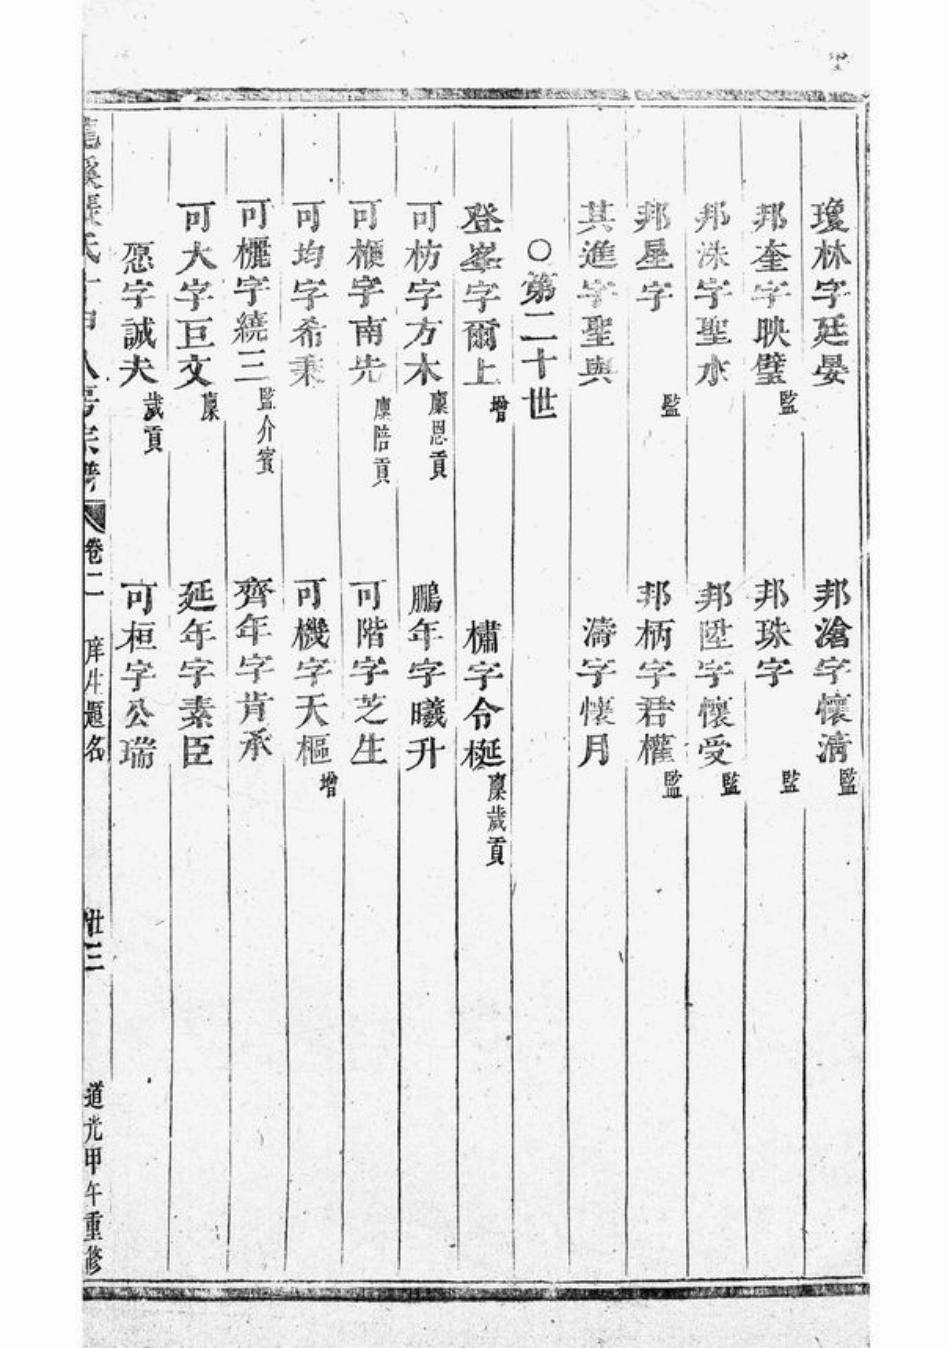 瓊林字廷晏　邦滄字懷清監
邦奎字映璧監　邦珠字監
邦洙字聖水　邦陞字懷受監
邦星字監　邦柄字君權監
其進字聖與　濤字懷月
○第二十世
登峯字爾上增　橚字令梴廩歲貢
可枋字方木廩恩貢　鵬年字曦升
可楩字南先廩陪貢　可階字芝生
可均字希秉　可機字天樞增
可欐字繞三監介賓　齊年字肯承
可大字巨文廩　延年字素臣
愿字誠夫歲貢　可桓字公瑞
溪張氏十甲八房宗譜　卷二　庠生題名　卅三　道光甲午重修